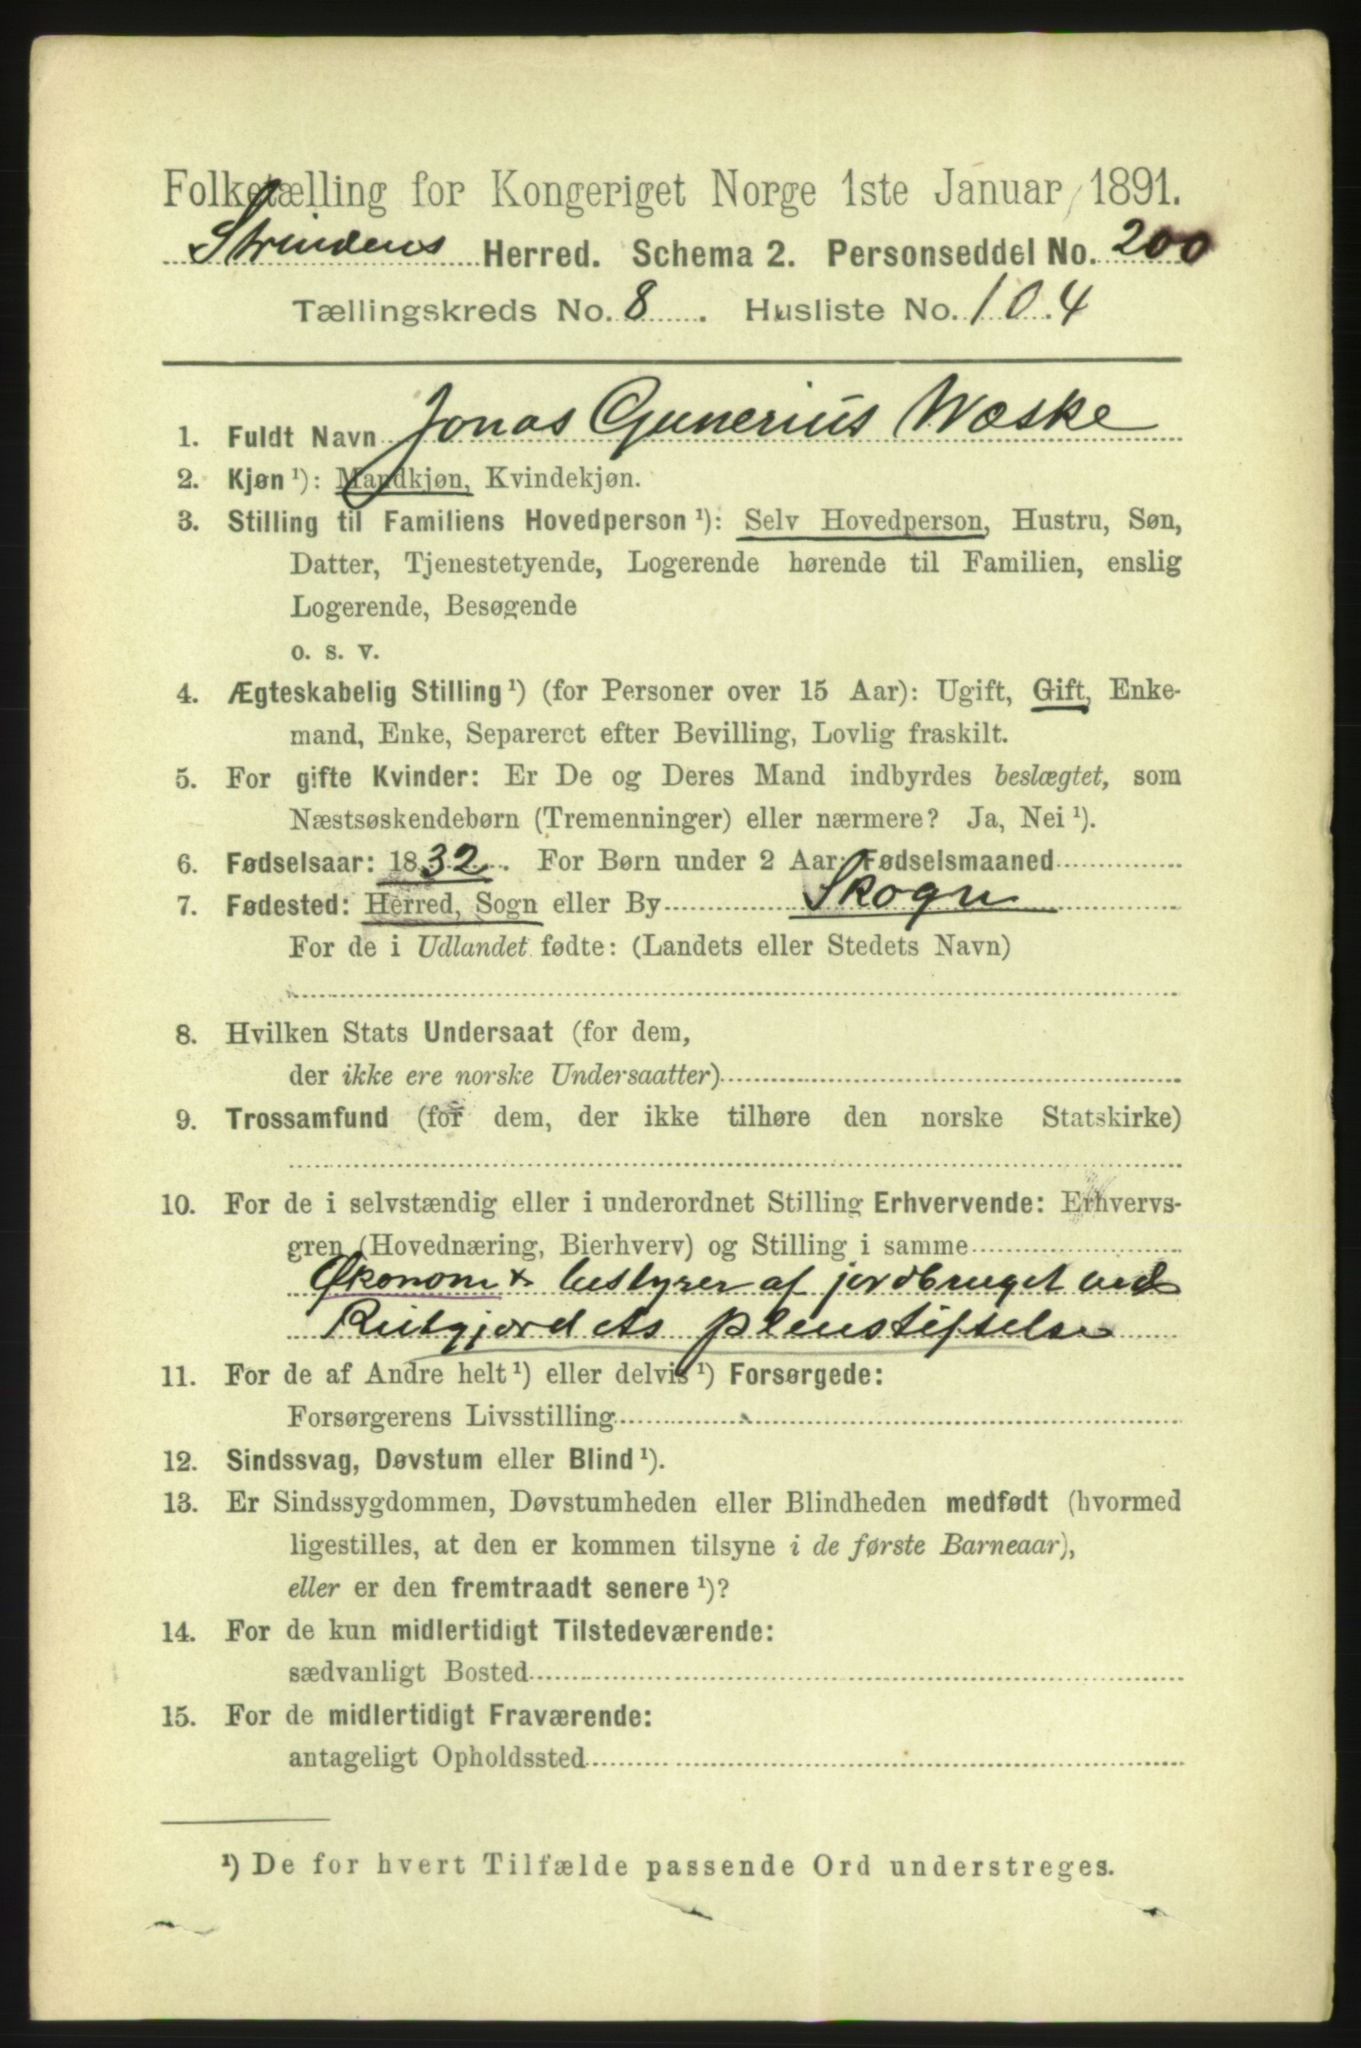 Folketælling for Kongeriget Norge 1ste Januar 1891.
Strindens Herred. Schema 2. Personseddel No. 200
Tællingskreds No. 8. Husliste No. 104
1. Fuldt Navn Jonas Gunerius Wæske
2. Kjøn ¹): Mandkjøn, Kvindekjøn.
3. Stilling til Familiens Hovedperson ¹): Selv Hovedperson, Hustru, Søn,
Datter, Tjenestetyende, Logerende hørende til Familien, enslig
Logerende, Besøgende
o. s. v.
4. Ægteskabelig Stilling ¹) (for Personer over 15 Aar): Ugift, Gift, Enke-
mand, Enke, Separeret efter Bevilling, Lovlig fraskilt.
5. For gifte Kvinder: Er De og Deres Mand indbyrdes beslægtet, som
Næstsøskendebørn (Tremenninger) eller nærmere? Ja, Nei ¹).
6. Fødselsaar: 1832. For Børn under 2 Aar: Fødselsmaaned
7. Fødested: Herred, Sogn eller By Skogn
For de i Udlandet fødte: (Landets eller Stedets Navn)
8. Hvilken Stats Undersaat (for dem,
der ikke ere norske Undersaatter)
9. Trossamfund (for dem, der ikke tilhøre den norske Statskirke)
10. For de i selvstændig eller i underordnet Stilling Erhvervende: Erhvervs-
gren (Hovednæring, Bierhverv) og Stilling i samme
Økonom & bestyrer af jordbruget ved
Reitgjordets pleiestiftelse
11. For de af Andre helt ¹) eller delvis ¹) Forsørgede:
Forsørgerens Livsstilling
12. Sindssvag, Døvstum eller Blind ¹).
13. Er Sindssygdommen, Døvstumheden eller Blindheden medfødt (hvormed
ligestilles, at den er kommen tilsyne i de første Barneaar),
eller er den fremtraadt senere ¹)?
14. For de kun midlertidigt Tilstedeværende:
sædvanligt Bosted
15. For de midlertidigt Fraværende:
antageligt Opholdssted
¹) De for hvert Tilfælde passende Ord understreges.